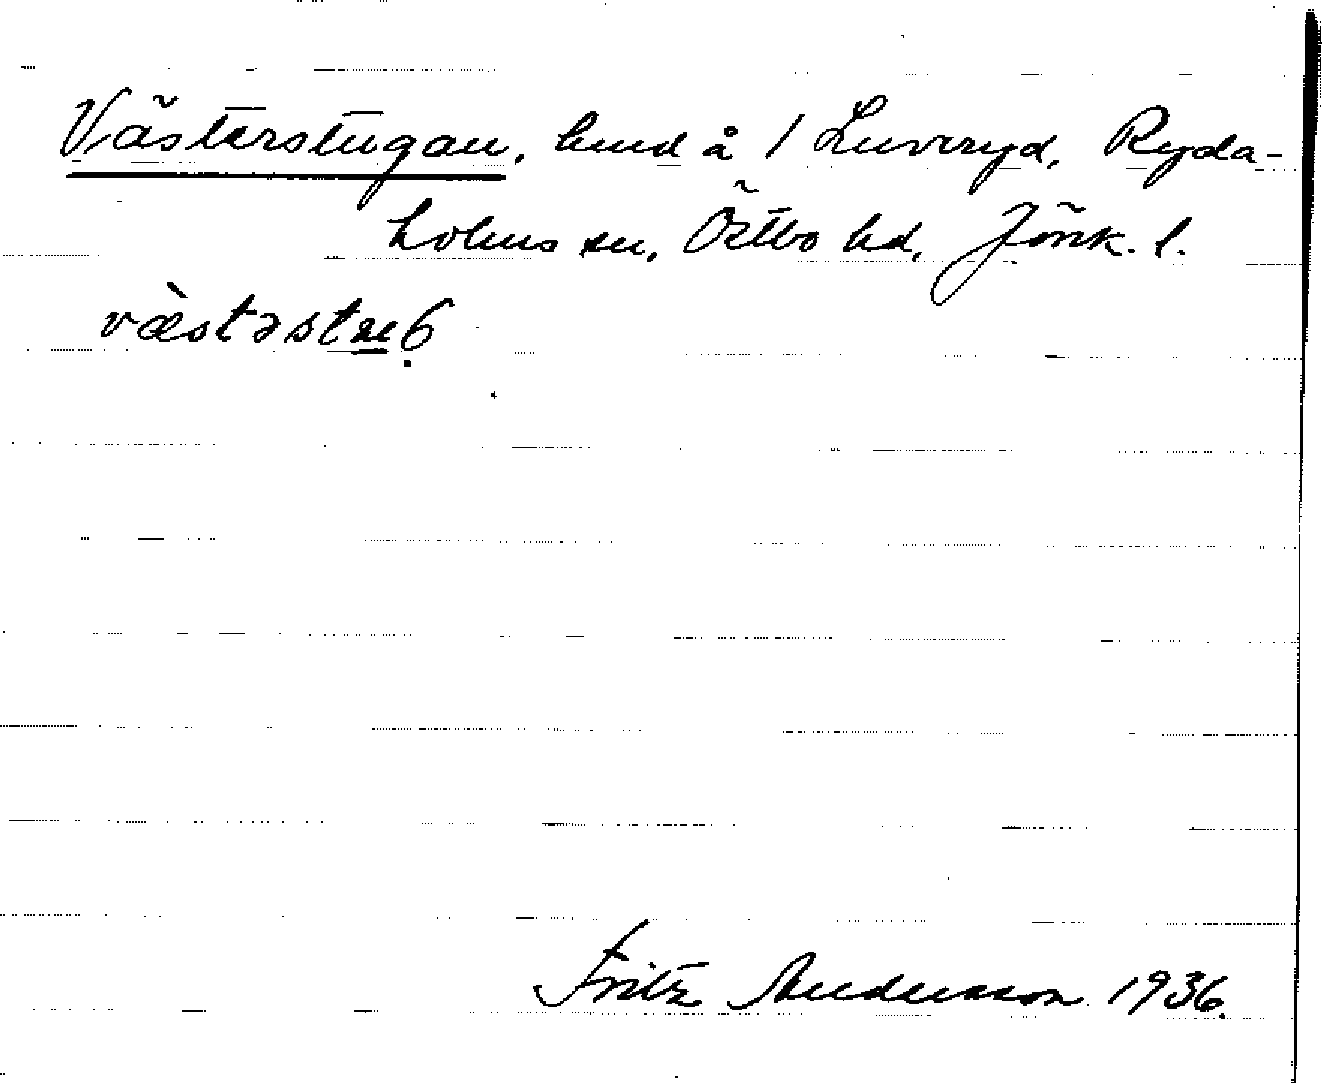 Västerstugan, hmd å 1 Luveryd, Ryda-
holms sn, Östbo hd, Jönk. l.
Fritz Andersson 1936.